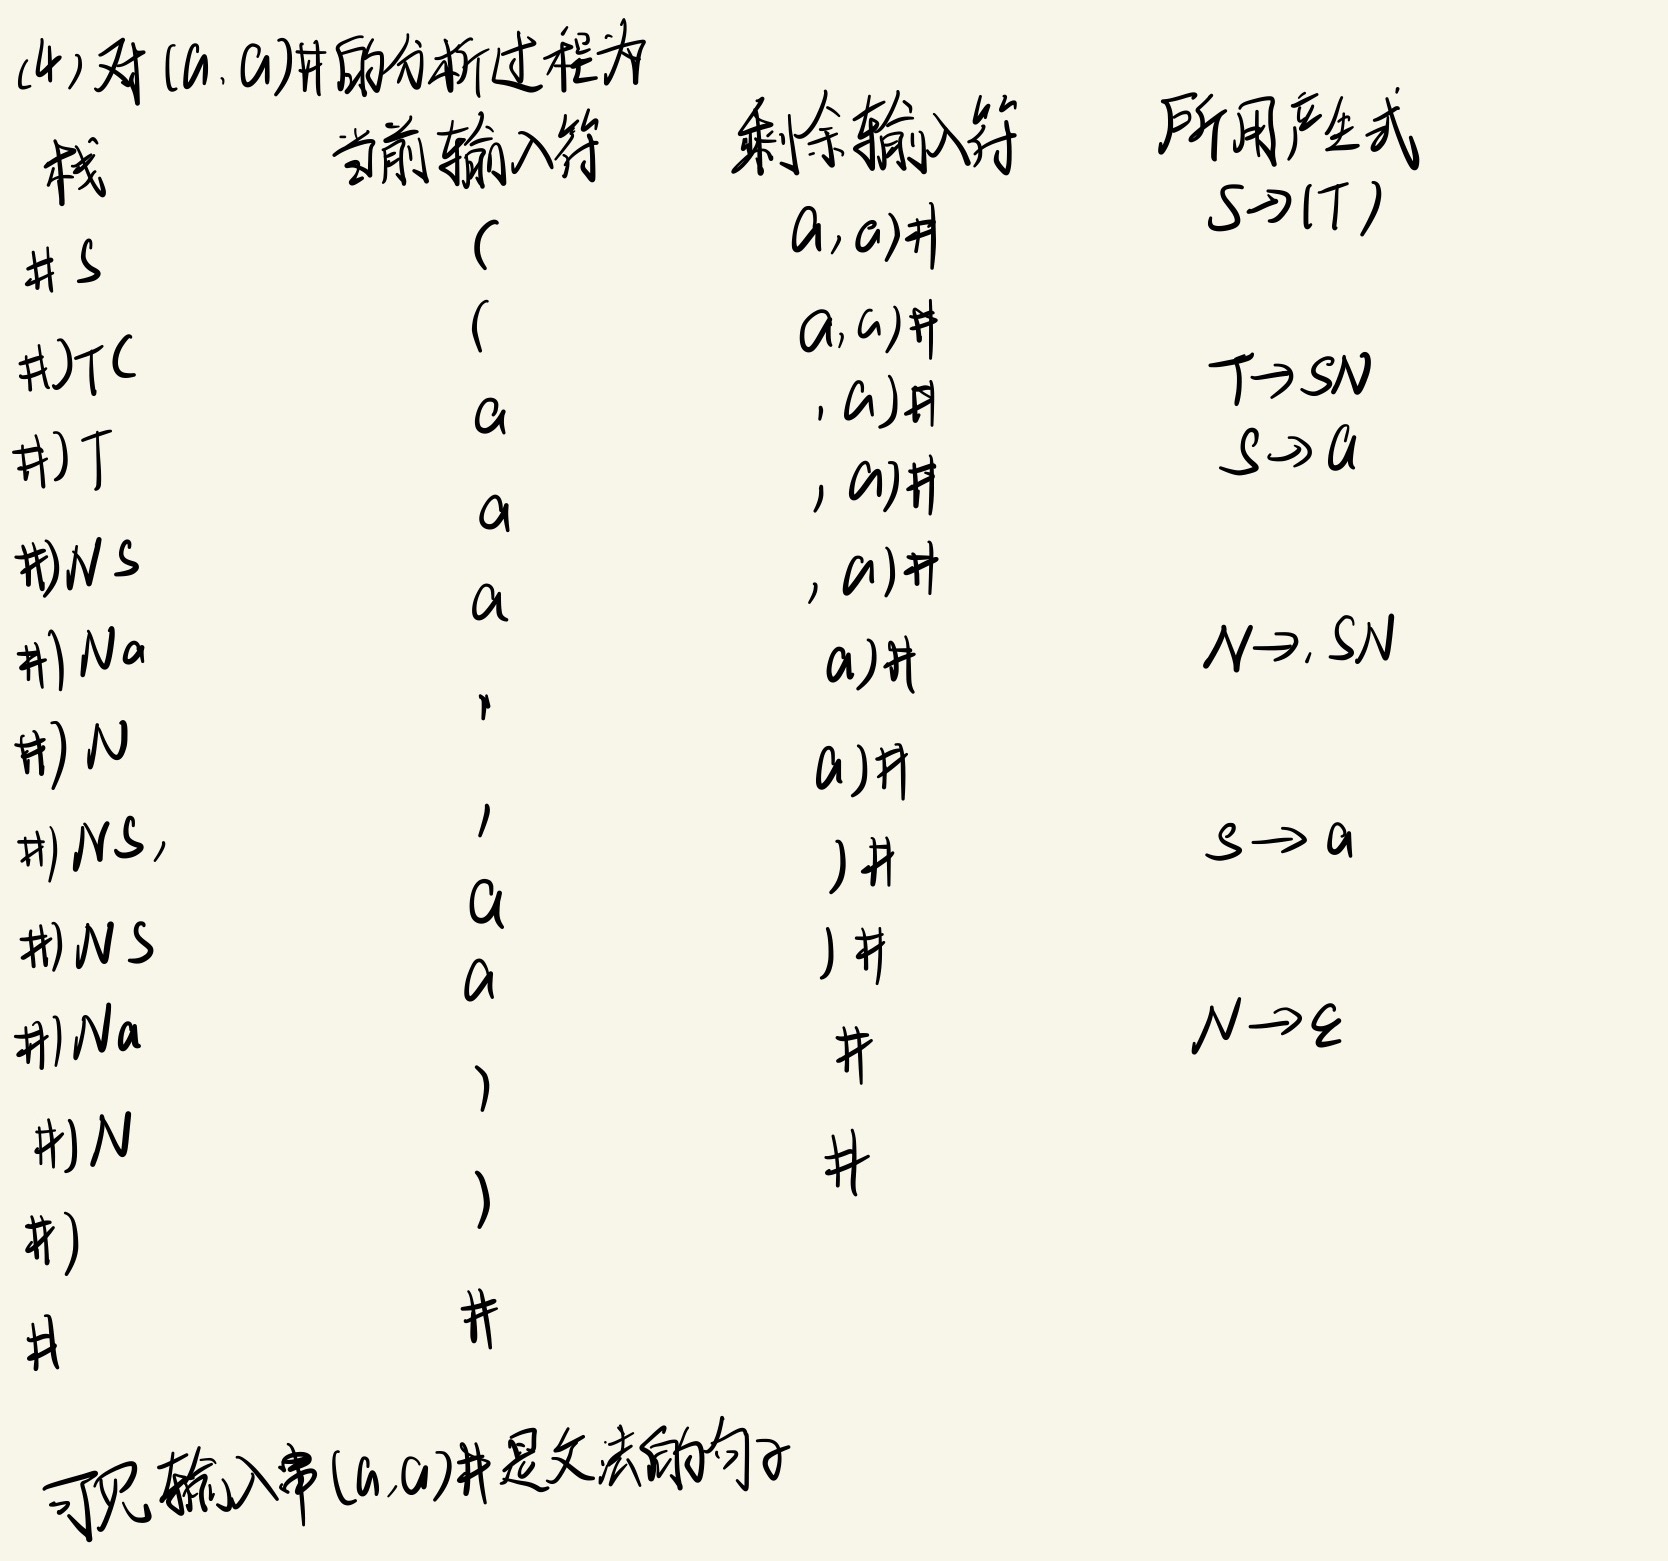 (4) 对 (a, a)# 的分析过程为
栈 当前输入符 剩余输入符 所用产生式
# S ( a, a)# S→(T)
#)T( ( a, a)#
#)T a , a)# T→SN
#)NS a , a)# S→a
#)Na a , a)#
#)N , a)# N→, SN
#)NS, , a)#
#)NS a )# S→a
#)Na a )#
#)N ) # N→ε
#) ) #
# #
可见输入串(a,a)#是文法的句子